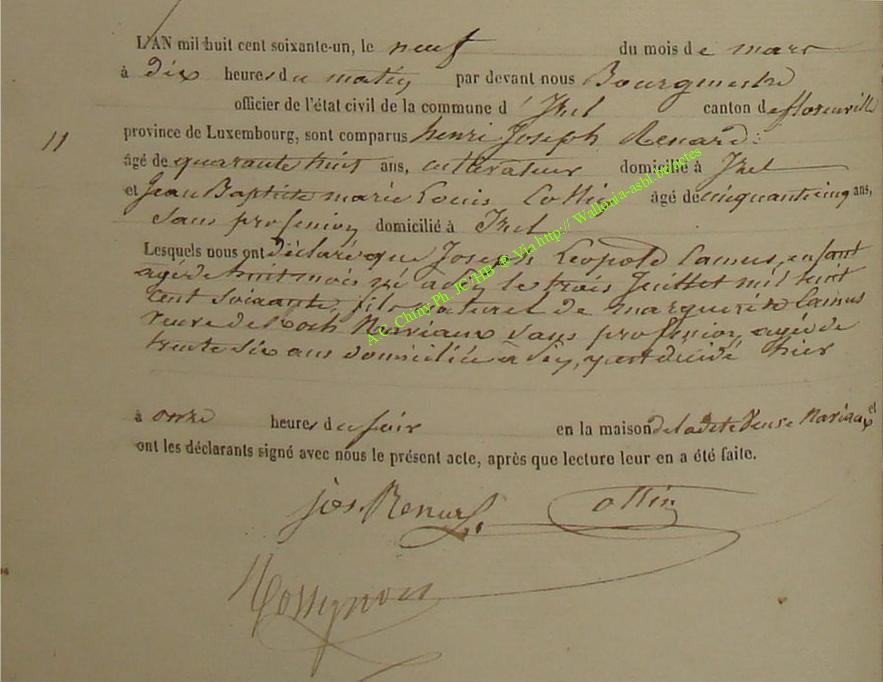 L'AN mil huit cent soixante-un, le neuf du mois de mars
à dix heures du matin par devant nous Bourgmestre
officier de l'état civil de la commune d'Izel canton de florenville
11 province de Luxembourg, sont comparus henri Joseph Renard
âgé de quarante huit ans, cultivateur domicilié à Izel
et Jean Baptiste marie Louis Collin âgé de cinquante cinq ans,
sans profession domicilié à Izel
Lesquels nous ont déclaré que Joseph Léopold Camus, enfant
agé de huit mois né à le trois Juillet mil huit
cent soixante, fils naturel de marguerite Camus
veuve de Roch sans profession, agée de
trente six ans domiciliée à y est décédé hier
à onze heures du soir en la maison de ladite Veuve et
ont les déclarants signé avec nous le présent acte, après que lecture leur en a été faite.
jos Renard. Collin
Rossignon
A.C. Chiny Ph. JC HB @ Via http:// Wallonia-asbl.be/actes